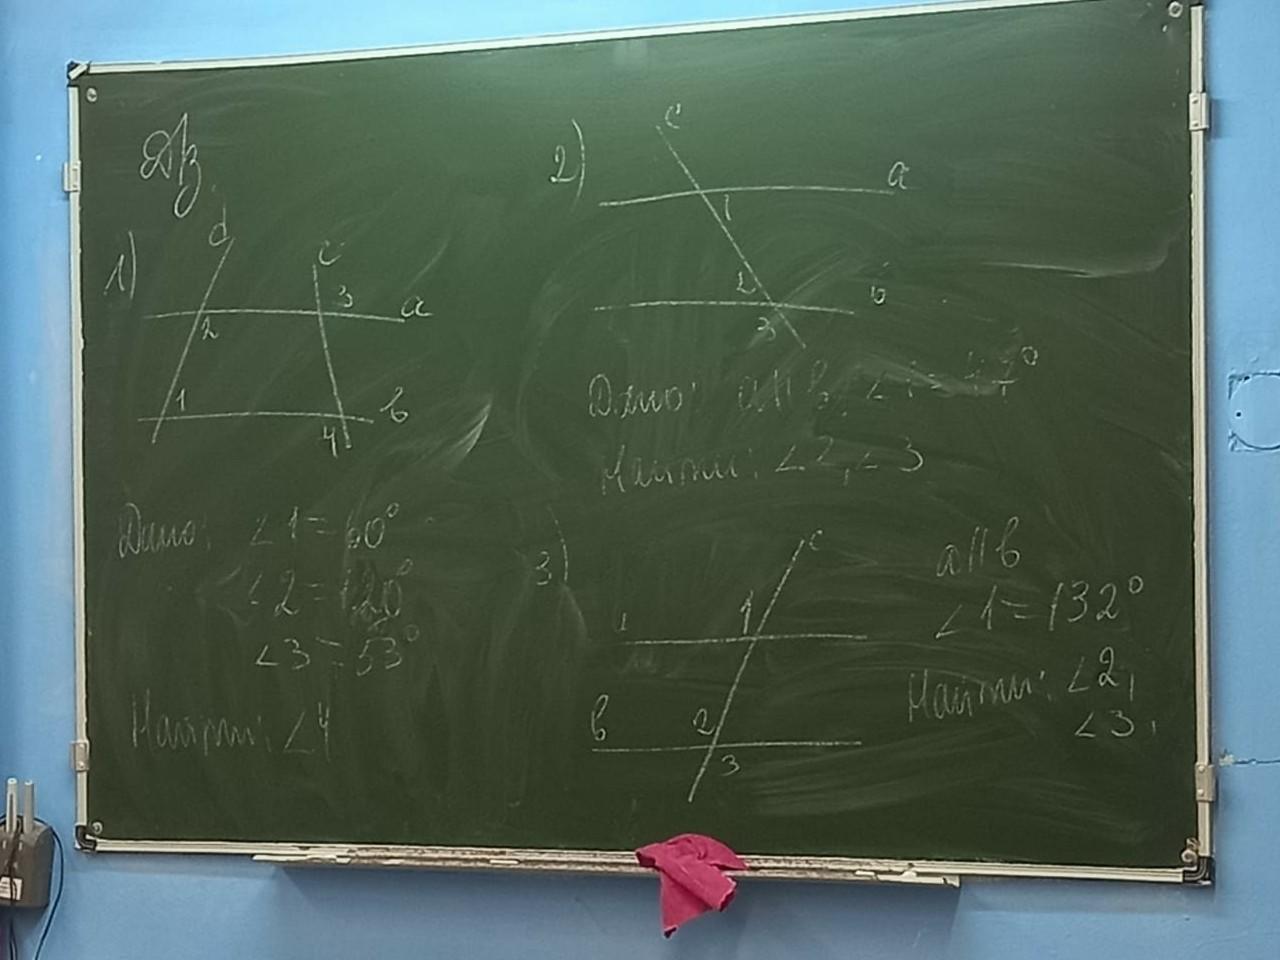 Дз.
1)
d
c
3
a
2
1
b
4
Дано: ∠1=60°
∠2=120°
∠3=53°
Найти: ∠4
2)
c
a
1
2
b
3
Дано: a||b, ∠1=
Найти: ∠2, ∠3
3)
c
1
b
2
3
a||b
∠1=132°
Найти: ∠2,
∠3.